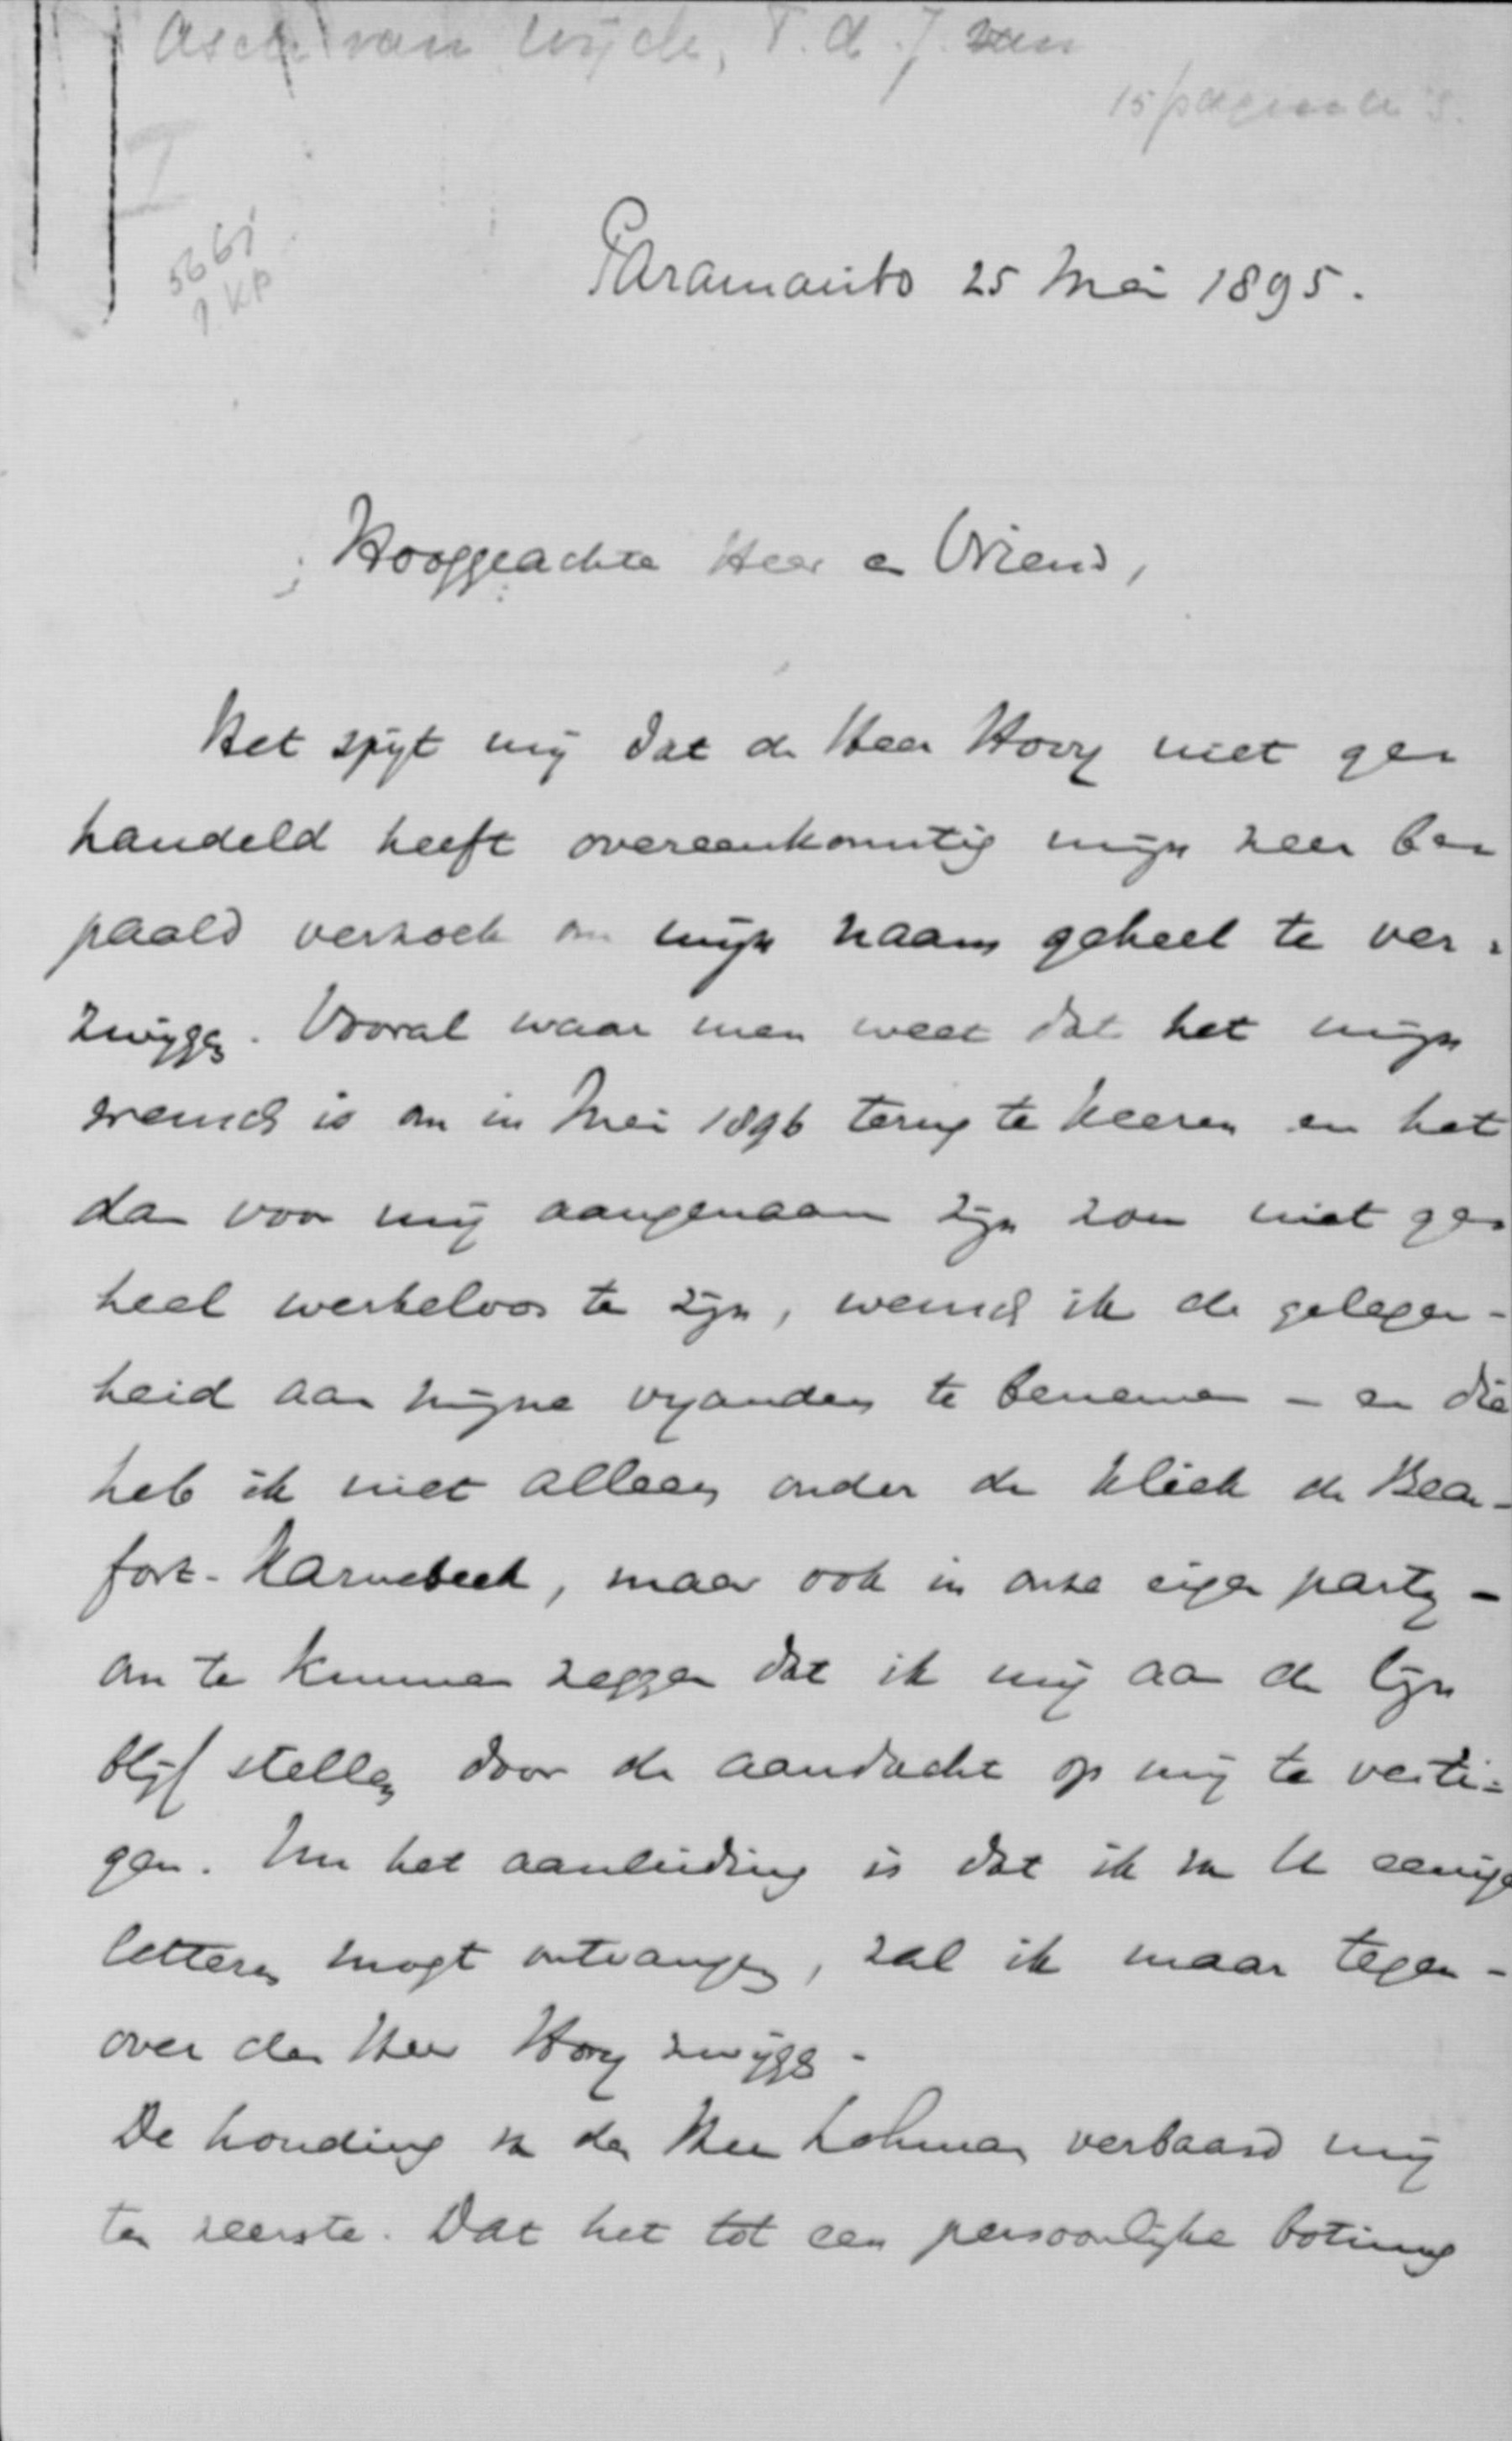 Asch van Wijck, T. d. J. van
15 pagina's.
5661
KP
Paramaribo 25 Mei 1895.
Hooggeachte Heer en Vriend,
Het spijt mij dat de Heer Hovy niet ge=
handeld heeft overeenkomstig mijn zeer be=
paald verzoek om mijn naam geheel te ver=
zwijgen. Vooral waar men weet dat het mijn
wensch is om in Mei 1896 terug te keeren en het
dan voor mij aangenaam zijn zou niet ge=
heel werkeloos te zijn, wensch ik de gelegen-
heid aan mijne vijanden te benemen – en die
heb ik niet alleen onder de kliek de Beau-
fort-Karnebeek, maar ook in onze eigen partij –
om te kunnen zeggen dat ik mij aan de lijn
blijf stellen door de aandacht op mij te vesti=
gen. Nu het aanleiding is dat ik van U eenige
letteren mogt ontvangen, zal ik maar tegen-
over den Heer Hovy zwijgen.
De houding van den Heer Lohman verbaasd mij
ten zeerste. Dat het tot een persoonlijke botsing